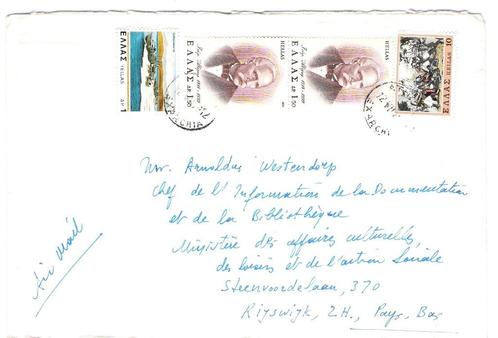 ΕΛΛΑΣ HELLAS ΔΡ 1
ΕΛΛΑΣ ΔΡ 1.50 HELLAS
ΕΛΛΑΣ ΔΡ 1.50 HELLAS
ΕΛΛΑΣ HELLAS 10
EXARCHIA
EXARCHIA
Mr. Arnoldus Westendorp
Chef de l'Information de la Documentation
et de la Bibliothèque
Ministère des affaires culturelles,
des loisirs et de l'action Sociale
Steenvoordelaan, 370
Rijswijk, Z.H., Pays-Bas
Air Mail